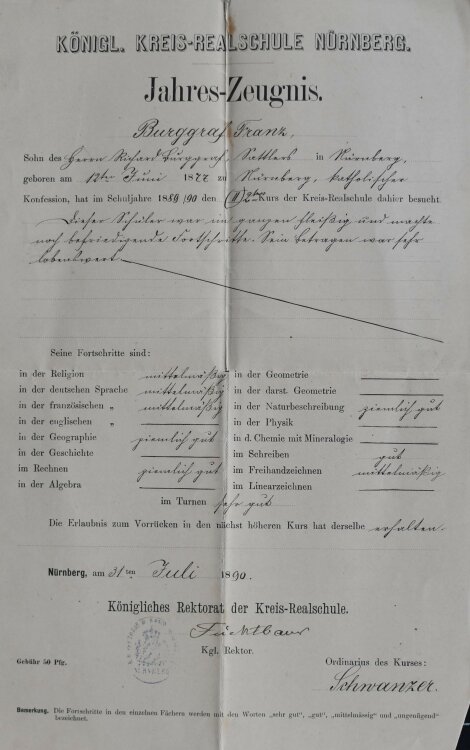 KÖNIGL. KREIS-REALSCHULE NÜRNBERG.
Jahres-Zeugnis.
Burggraf Franz,
Sohn des Herrn Richard Burggraf, Sattlers in Nürnberg,
geboren am 12ten Juni 1877 zu Nürnberg, katholischer
Konfession, hat im Schuljahre 1889/90 den 2ten Kurs der Kreis-Realschule dahier besucht.
Dieser Schüler war im ganzen fleißig und machte
noch befriedigende Fortschritte. Sein Betragen war sehr
lobenswert.
Seine Fortschritte sind:
in der Religion mittelmäßig in der Geometrie
in der deutschen Sprache mittelmäßig in der darst. Geometrie
in der französischen „ mittelmäßig in der Naturbeschreibung ziemlich gut
in der englischen „ in der Physik
in der Geographie ziemlich gut in d. Chemie mit Mineralogie
in der Geschichte im Schreiben gut
im Rechnen ziemlich gut im Freihandzeichnen mittelmäßig
in der Algebra im Linearzeichnen
im Turnen sehr gut
Die Erlaubnis zum Vorrücken in den nächst höheren Kurs hat derselbe erhalten.
Nürnberg, am 31ten Juli 1890.
Königliches Rektorat der Kreis-Realschule.
Kgl. Rektor.
Gebühr 50 Pfg. Ordinarius des Kurses:
Schwanzer.
Bemerkung. Die Fortschritte in den einzelnen Fächern werden mit den Worten „sehr gut", „gut", „mittelmässig" und „ungenügend"
bezeichnet.